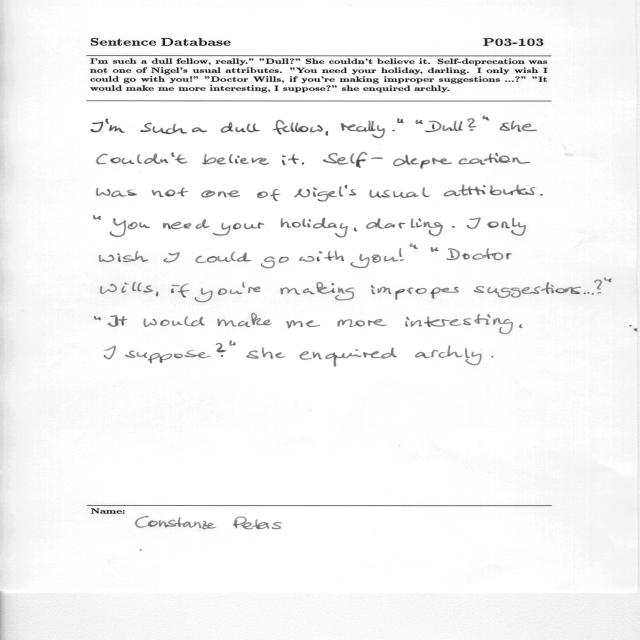 Sentence Database P03-103
I'm such a dull fellow, really." "Dull?" She couldn't believe it. Self-deprecation was
not one of Nigel's usual attributes. "You need your holiday, darling. I only wish I
could go with you!" "Doctor Wills, if you're making improper suggestions ...?" "It
would make me more interesting, I suppose?" she enquired archly.
I'm such a dull fellow, really." "Dull?" She
couldn't believe it. Self-deprecation
was not one of Nigel's usual attributes.
"You need your holiday, darling. I only
wish I could go with you!" "Doctor
Wills, if you're making improper suggestions...?"
"It would make me more interesting,
I suppose?" she enquired archly.
Name:
Constanze Peters